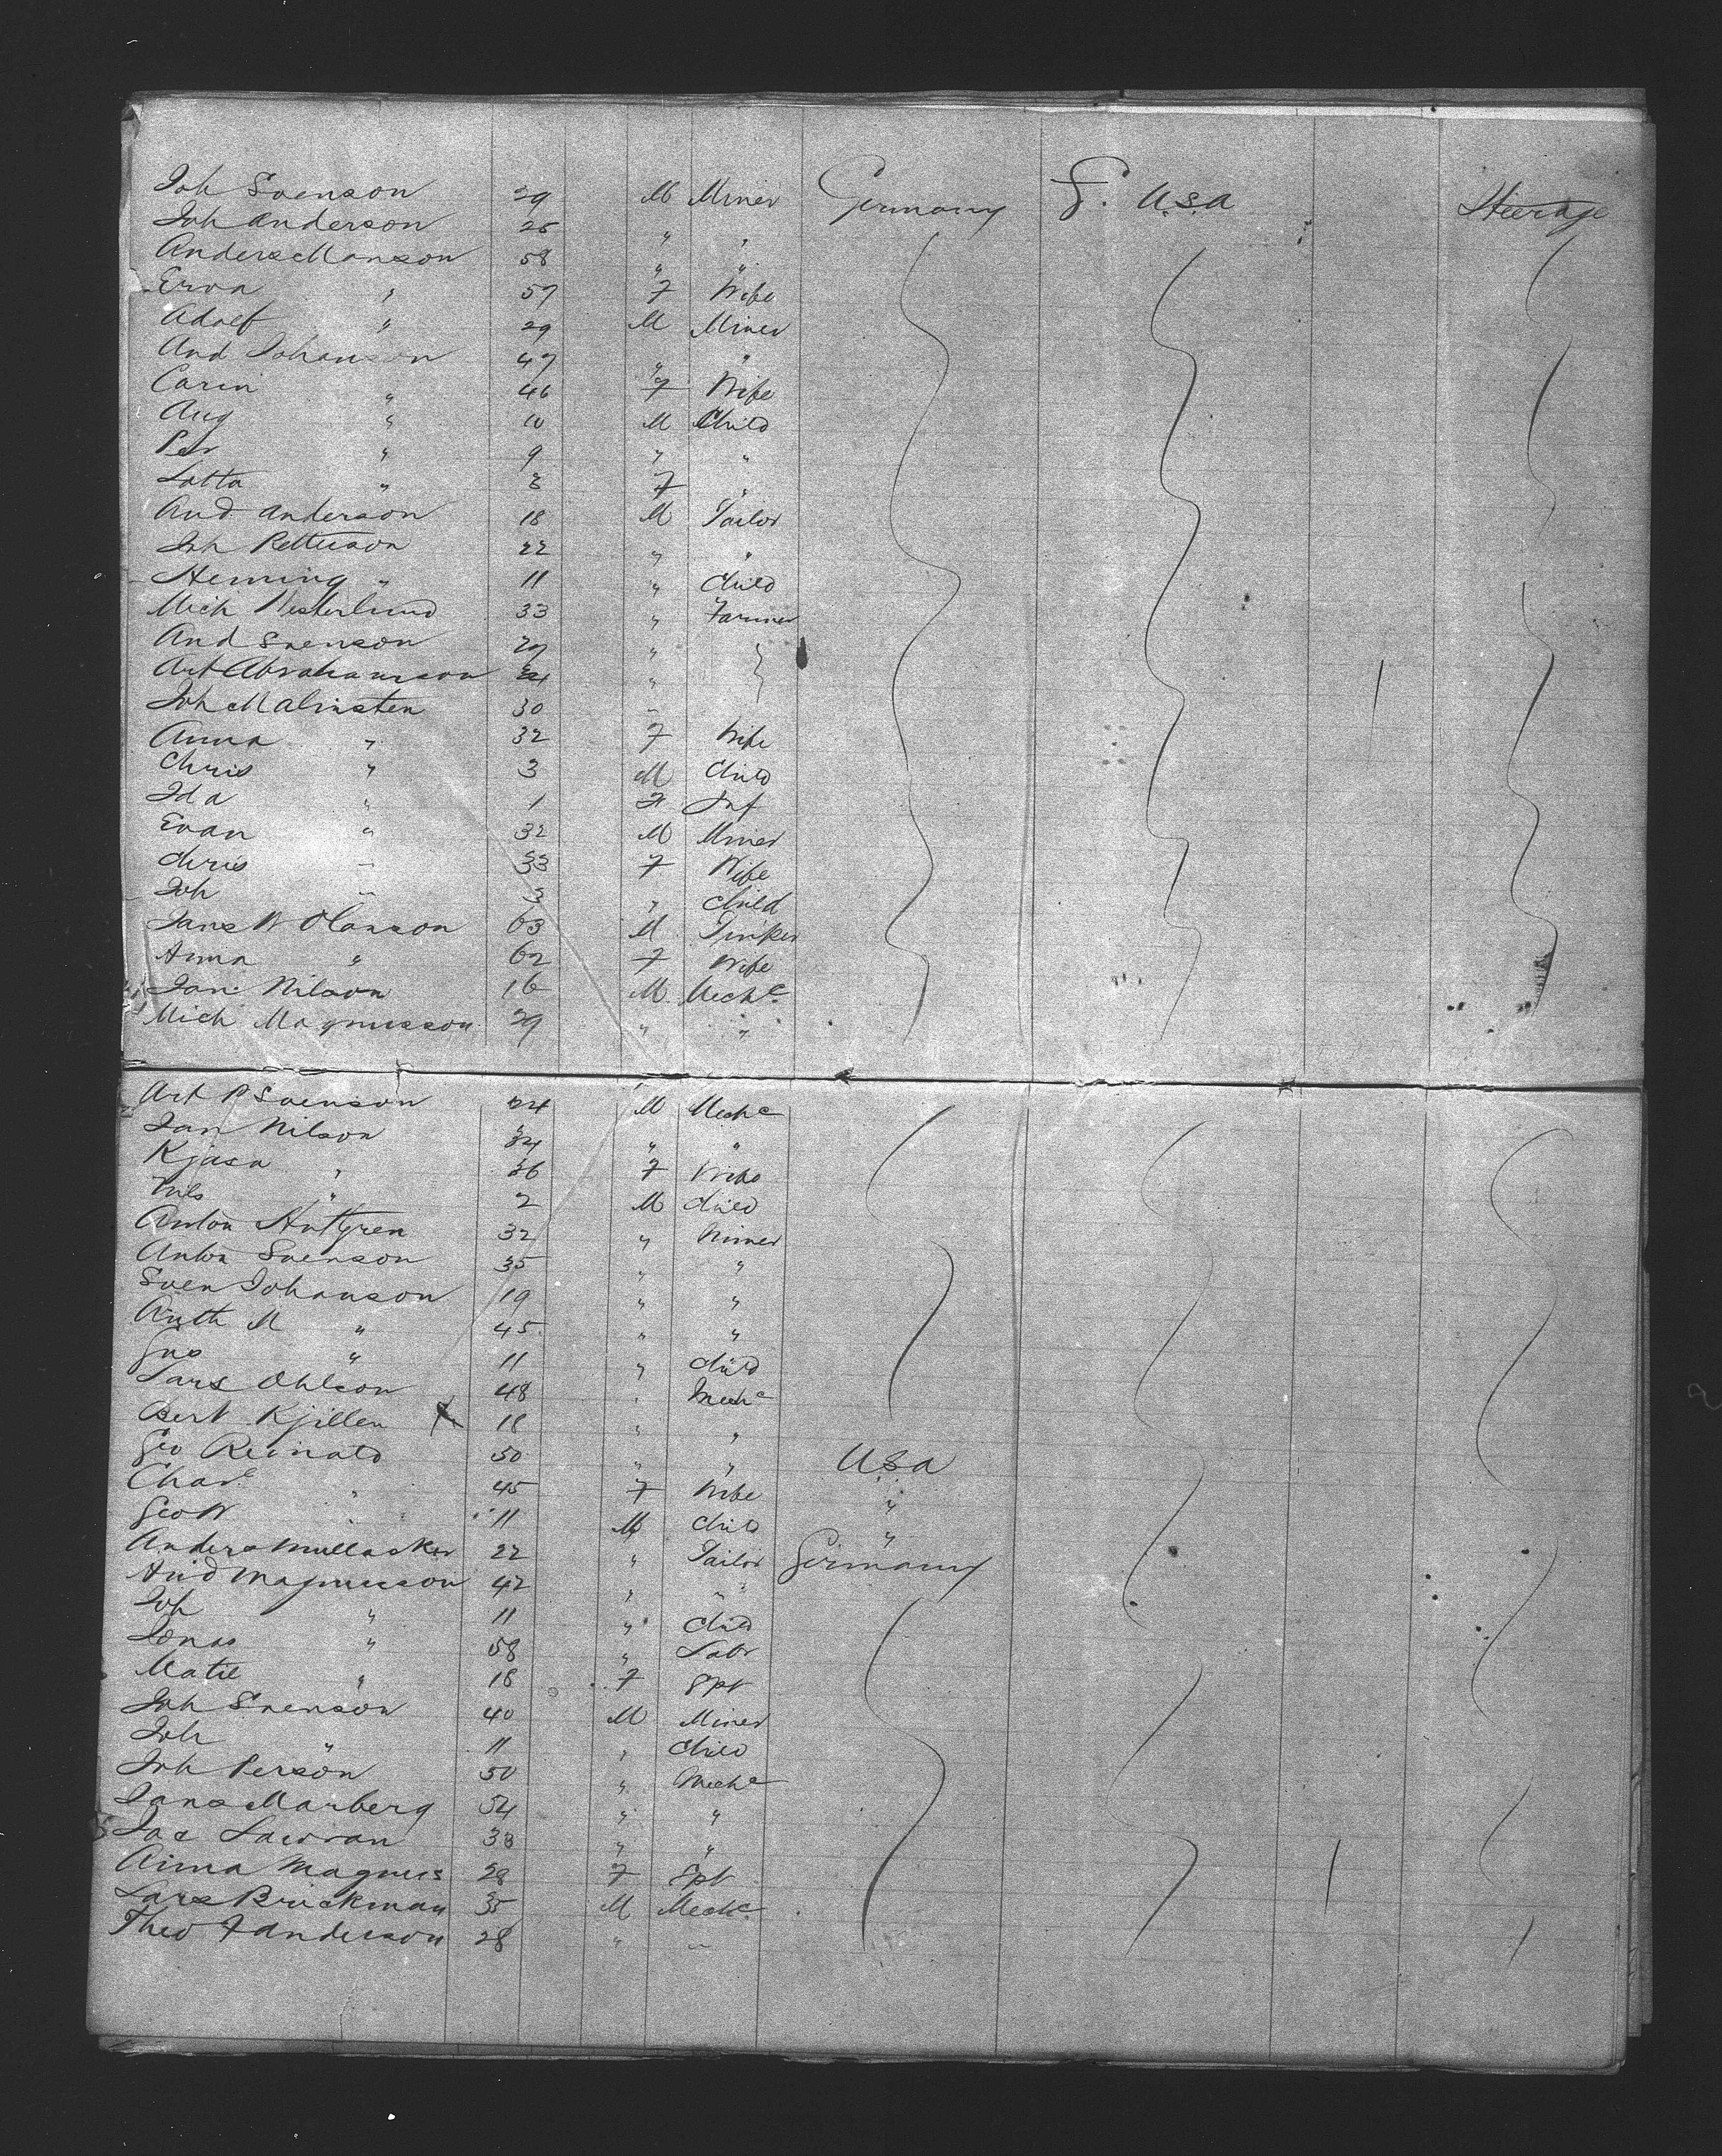 Joh Svenson 29 M Miner Germany G. USA Steerage
Joh Anderson 25 " "
Anders Manson 58 " "
Erva " 57 F Wife
Adolf " 29 M Miner
And Johanson 47 " "
Carin " 46 F Wife
Aug " 10 M Child
Per " 9 " "
Lotta " 8 F "
And Anderson 18 M Tailor
Joh Petterson 22 " "
Heming " 11 " Child
Mich Westerlund 33 " Farmer
And Svenson 29 "
Art Abrahamson "
Joh Malmsten 30 "
Anna " 32 F Wife
Chris " 3 M Child
Ida " 1 F Inf
Evan " 32 M Miner
Chris " 33 F Wife
Joh " 3 " Child
Jans W Olanson 63 M Tinker
Anna " 62 F Wife
Jan Nilson 16 M Mechc
Mich Magnusson 29 " "
Art P Svenson 24 M Mechc
Jan Nilson 34 " "
Kjasa " 36 F Wife
Nils " 2 M Child
Anton Hultgren 32 " Miner
Anton Svenson 35 " "
Sven Johanson 19 " "
Anth M " 45 " "
Gus " 11 " Child
Lars Ohlson 48 " Mechc
Bert Kjillen 18 " "
Geo Reinald 50 " " USA
Chare " 45 F Wife "
Geo W " 11 M Child "
Anders Mullasker 22 " Tailor Germany
And Magnusson 42 " "
Joh " 11 " Child
Jonas " 58 " Labr
Matil " 18 F Spt
Joh Svenson 40 M Miner
Joh " 11 " Child
Joh Person 50 " Mechc
Jans Marberg 54 " "
Jac Lawran 38 " "
Anna Magnus 28 F Spt
Lars Brickman 35 M Mechc
Theo F Anderson 28 " "